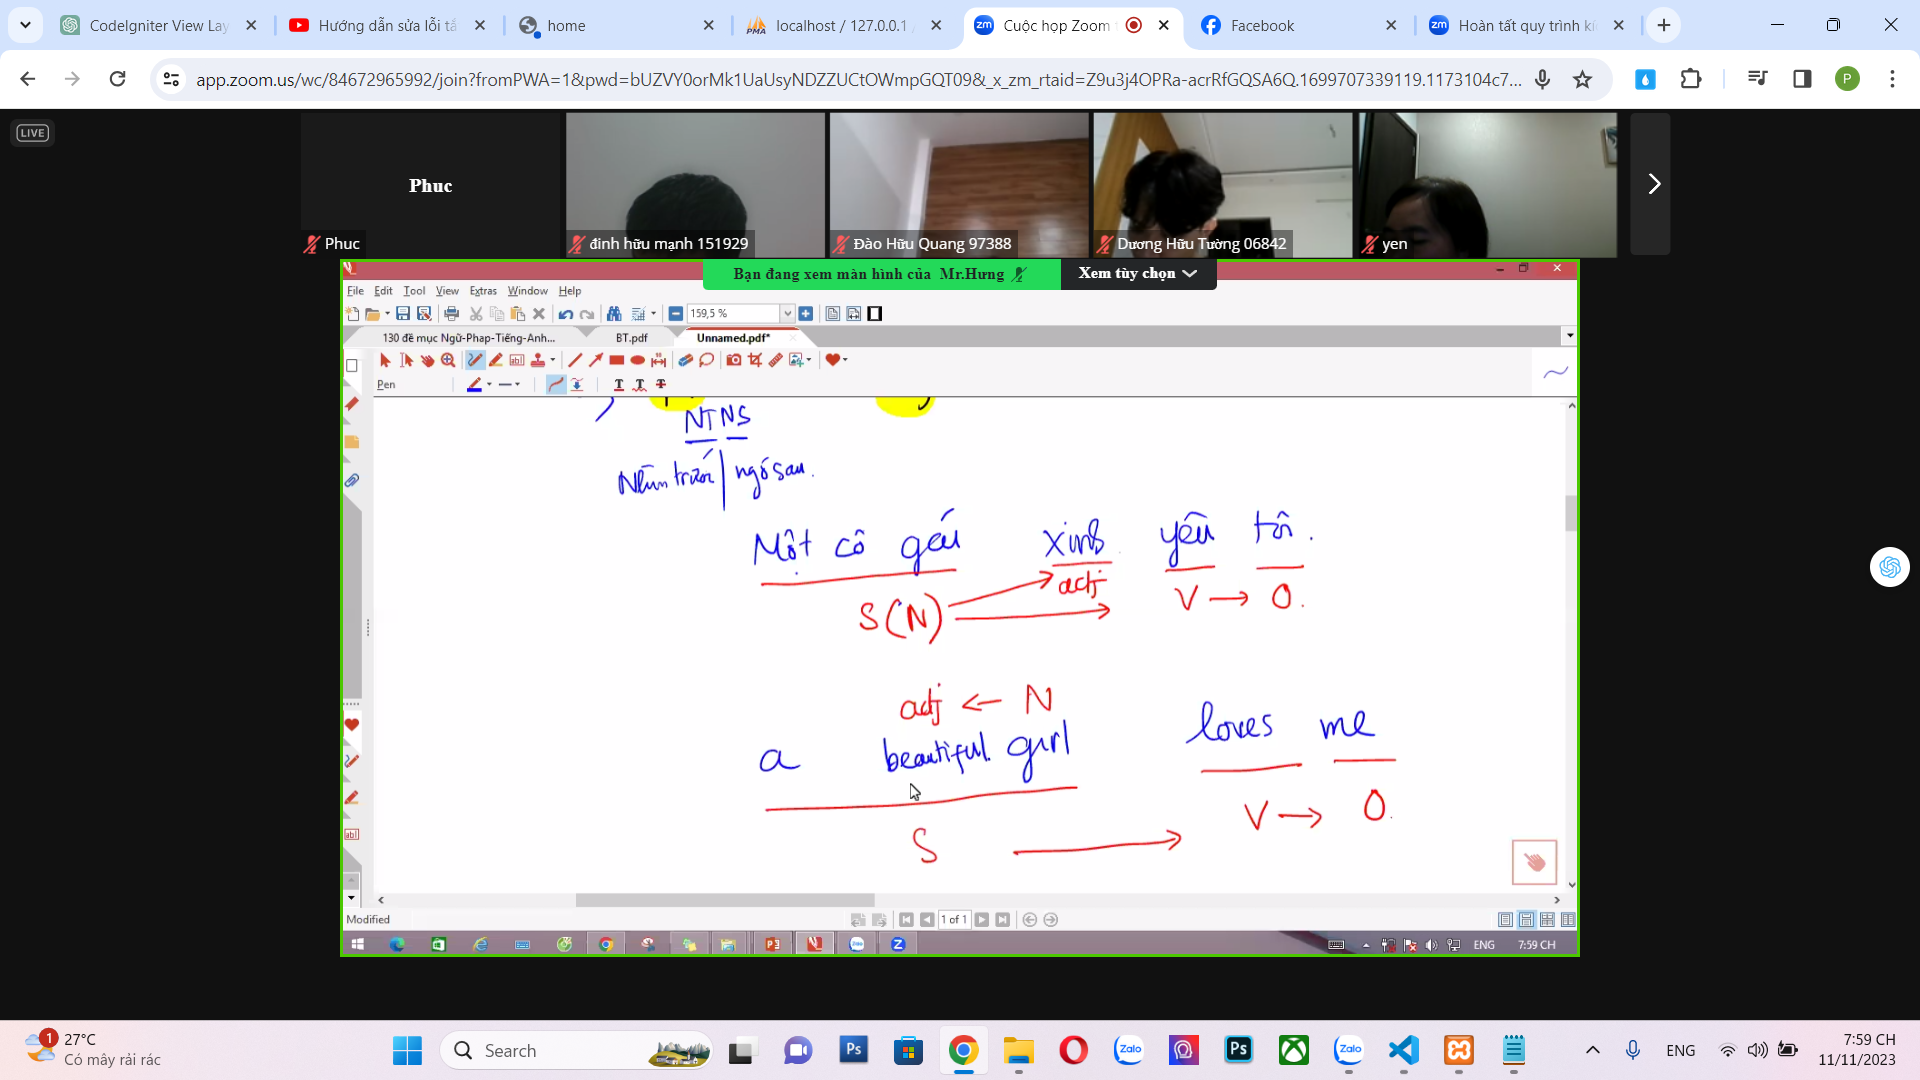 CodeIgniter View Lay
Hướng dẫn sửa lỗi tả
home
localhost / 127.0.0.1
Cuộc họp Zoom
Facebook
Hoàn tất quy trình kí
app.zoom.us/wc/84672965992/join?fromPWA=1&pwd=bUZVY0orMk1UaUsyNDZZUCtOWmpGQT09&_x_zm_rtaid=Z9u3j4OPRa-acrRfGQSA6Q.1699707339119.1173104c7...
P
LIVE
Phuc
Phuc
đinh hữu mạnh 151929
Đào Hữu Quang 97388
Dương Hữu Tường 06842
yen
Bạn đang xem màn hình của Mr.Hưng
Xem tùy chọn
File Edit Tool View Extras Window Help
159,5 %
130 đề mục Ngữ-Pháp-Tiếng-Anh...
BT.pdf
Unnamed.pdf*
Pen
NT NS
Nhìn trước | ngó sau.
Một cô gái xinh yêu tôi.
S(N) adj V → O.
adj ← N
a beautiful girl loves me
S V → O.
Modified
1 of 1
ENG
7:59 CH
1
27°C
Có mây rải rác
Search
Ps
Zalo
Ps
Zalo
ENG
7:59 CH
11/11/2023